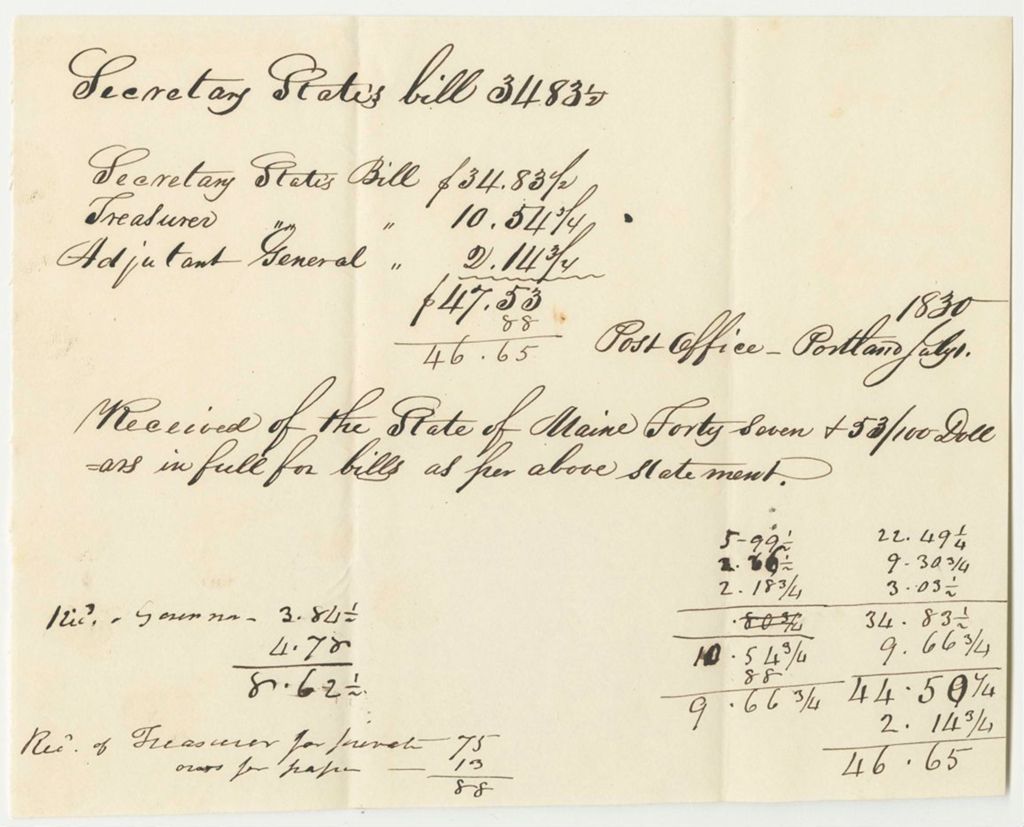 Secretary State's bill 34 83½
Secretary State's Bill $34.83½
Treasurer " " 10.54¾
Adjutant General " 2.14¾
$47.53
88
46.65
1830
Post Office - Portland July 1.
Received of the State of Maine Forty Seven & 53/100 Doll
=ars in full for bills as per above statement.
5-99½ 22.49¼
2.36½ 9.30¾
2.18¾ 3.03½
.80¾ 34.83½
10.54¾ 9.66¾
88
9.66¾ 44.50¼
2.14¾
46.65
Rec'd. - Governor - 3.84½
4.78
8.62½
Rec'd. of Treasurer for private 75
for paper — 13
88